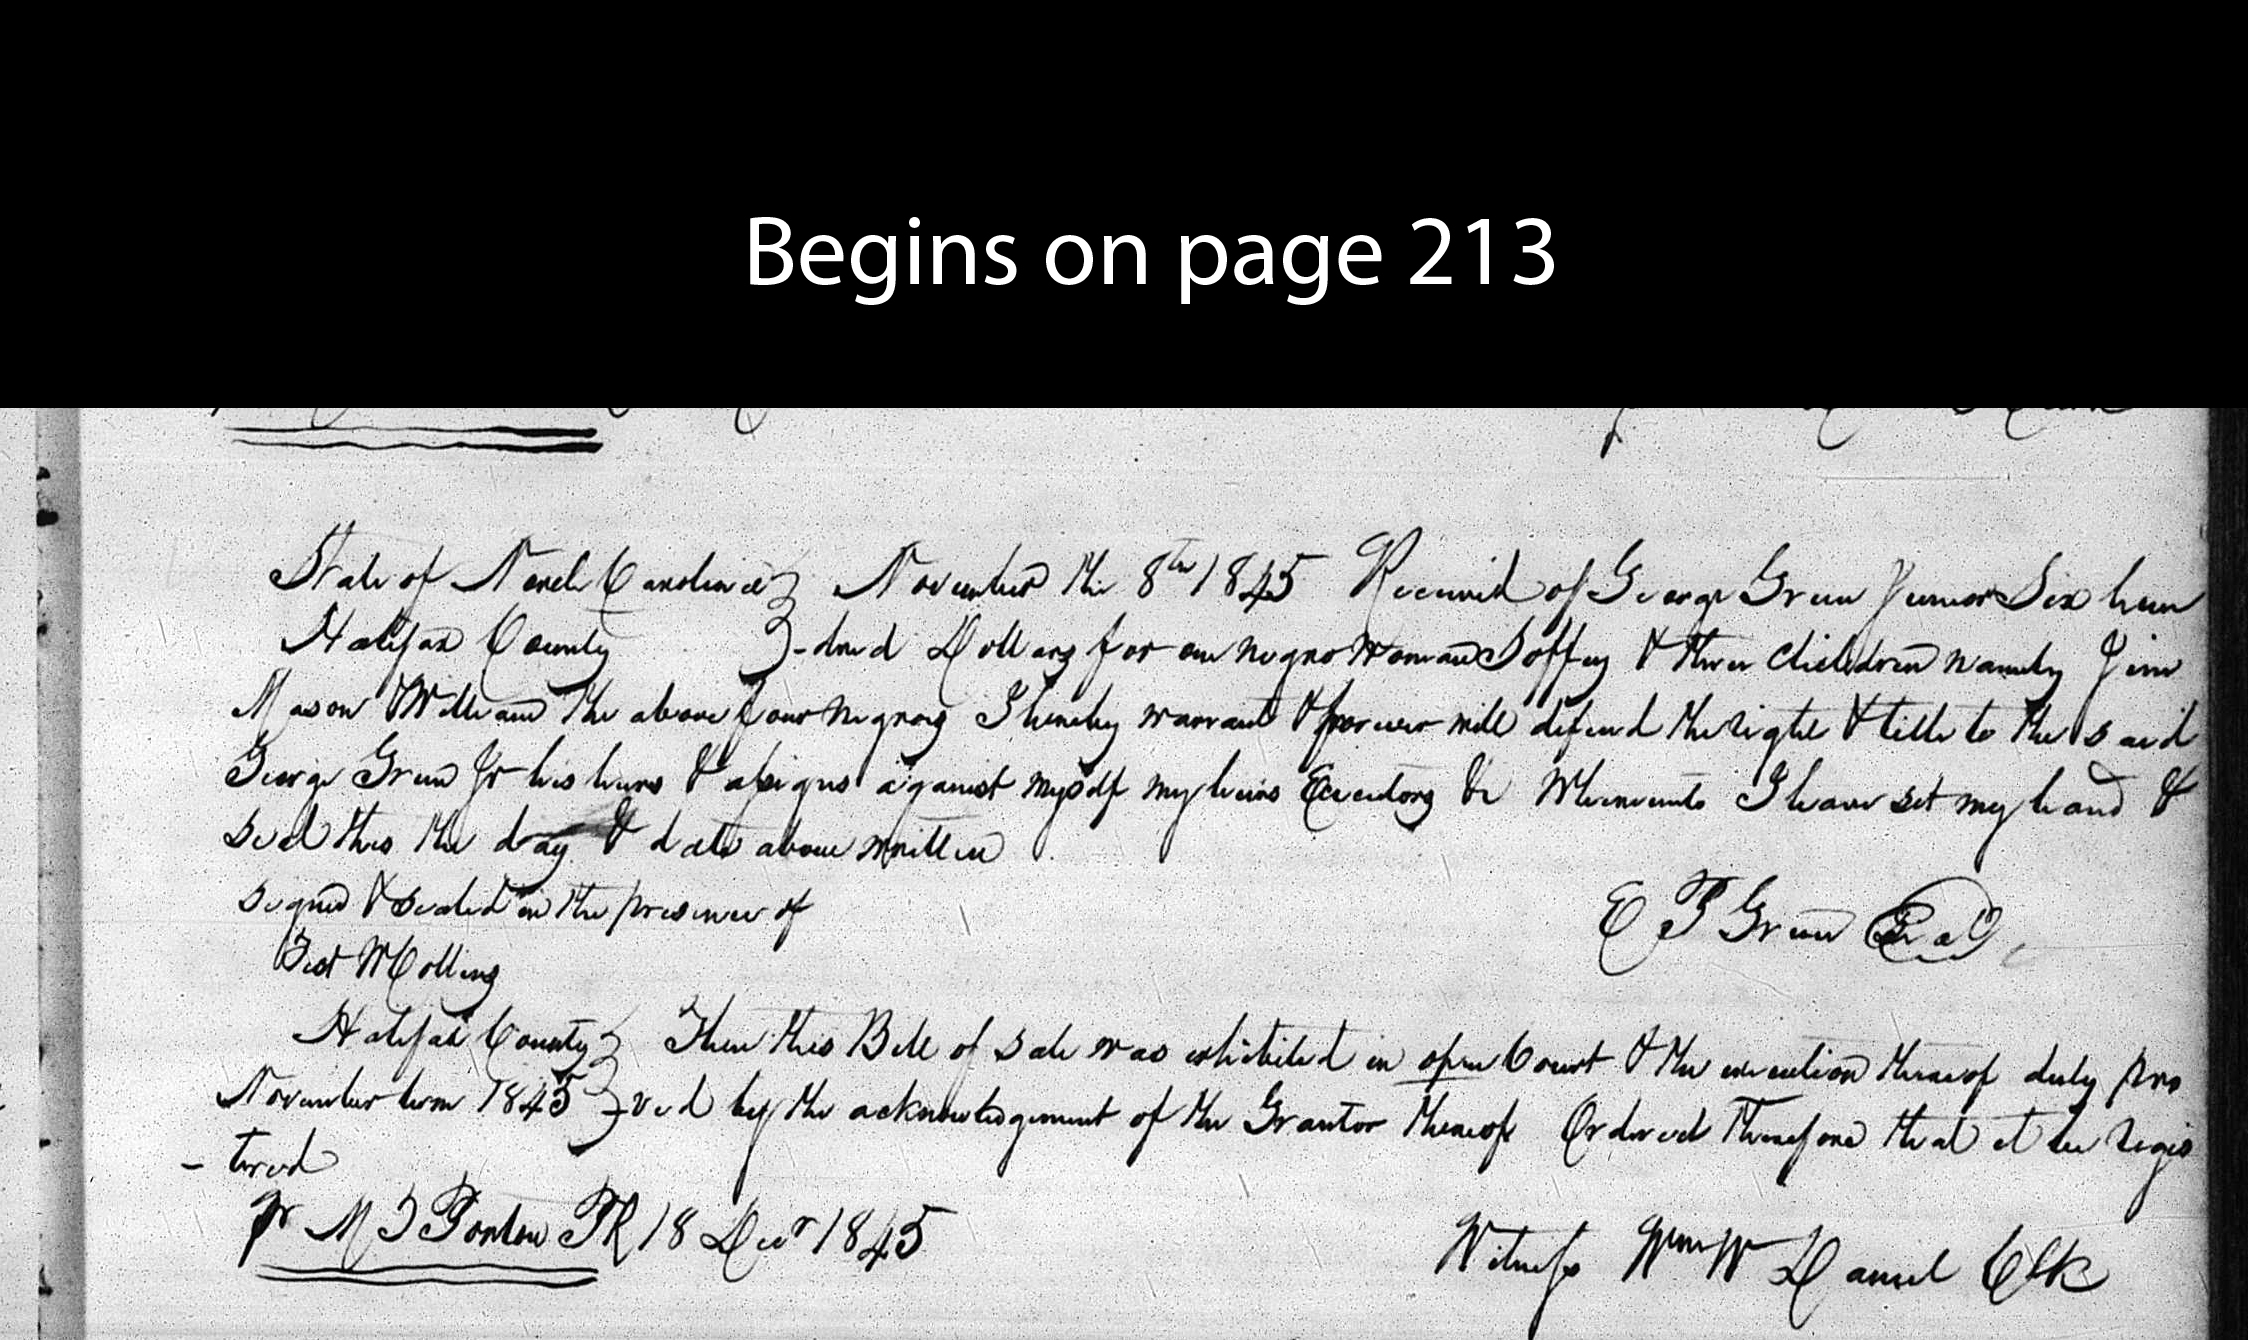 Begins on page 213
State of North Carolina } November the 8th 1845 Received of George Green Junior Six hun
Halifax County } -dred Dollars for one negro Woman Soffey & three children namely Jim
Mason & William the above four negroes I hereby warrant & forever will defend the right & title to the said
George Green Jr his heirs & assigns against myself my heirs Executors &c Whereunto I have set my hand &
seal this the day & date above written
signed & sealed in the presence of
E T Green Seal
Test W Collins
Halifax County } Then this Bill of sale was exhibited in open Court & the execution thereof duly pro
November term 1845 } ved by the acknowledgement of the Grantor thereof Ordered therefore that it be regis
- tered
pr M T Ponton PR 18 Decr 1845
Witness Wm W Daniel Clk